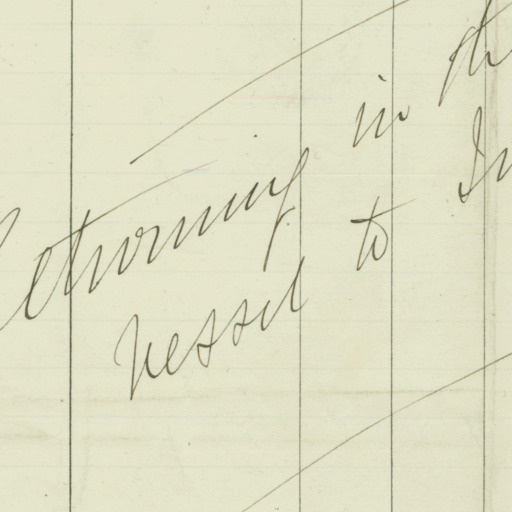 Returning in the
vessel to In